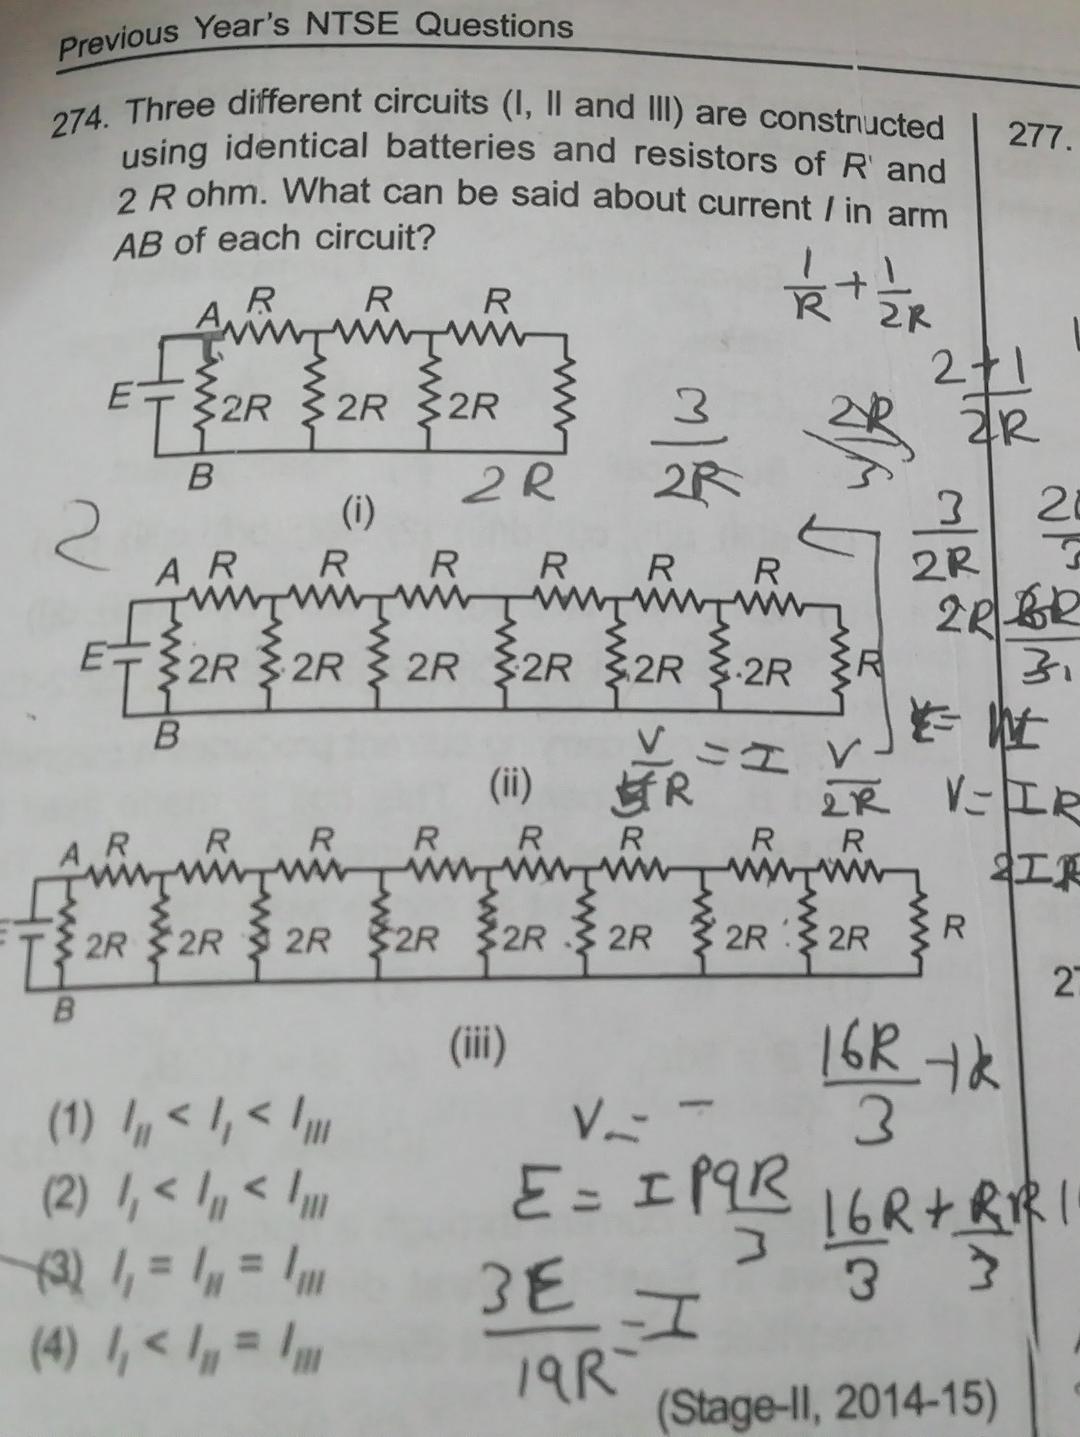 Previous Year's NTSE Questions
274. Three different circuits (I, II and III) are constructed
using identical batteries and resistors of R and
2 R ohm. What can be said about current I in arm
AB of each circuit?
277.
1/R + 1/2R
2+1/2R
A R R R
E 2R 2R 2R
B
2R
(i)
3/2R
2R/3
3/2R
2
A R R R R R R
E 2R 2R 2R 2R 2R 2R R
B
(ii)
V/R = I
V/2R
V = IR
A R R R R R R R R
2R 2R 2R 2R 2R 2R 2R 2R R
B
(iii)
16R/3
(1) I_II < I_I < I_III
(2) I_I < I_II < I_III
(3) I_I = I_II = I_III
(4) I_I < I_II = I_III
V = -
E = I 19R/3
16R/3 + R
3E/19R = I
(Stage-II, 2014-15)